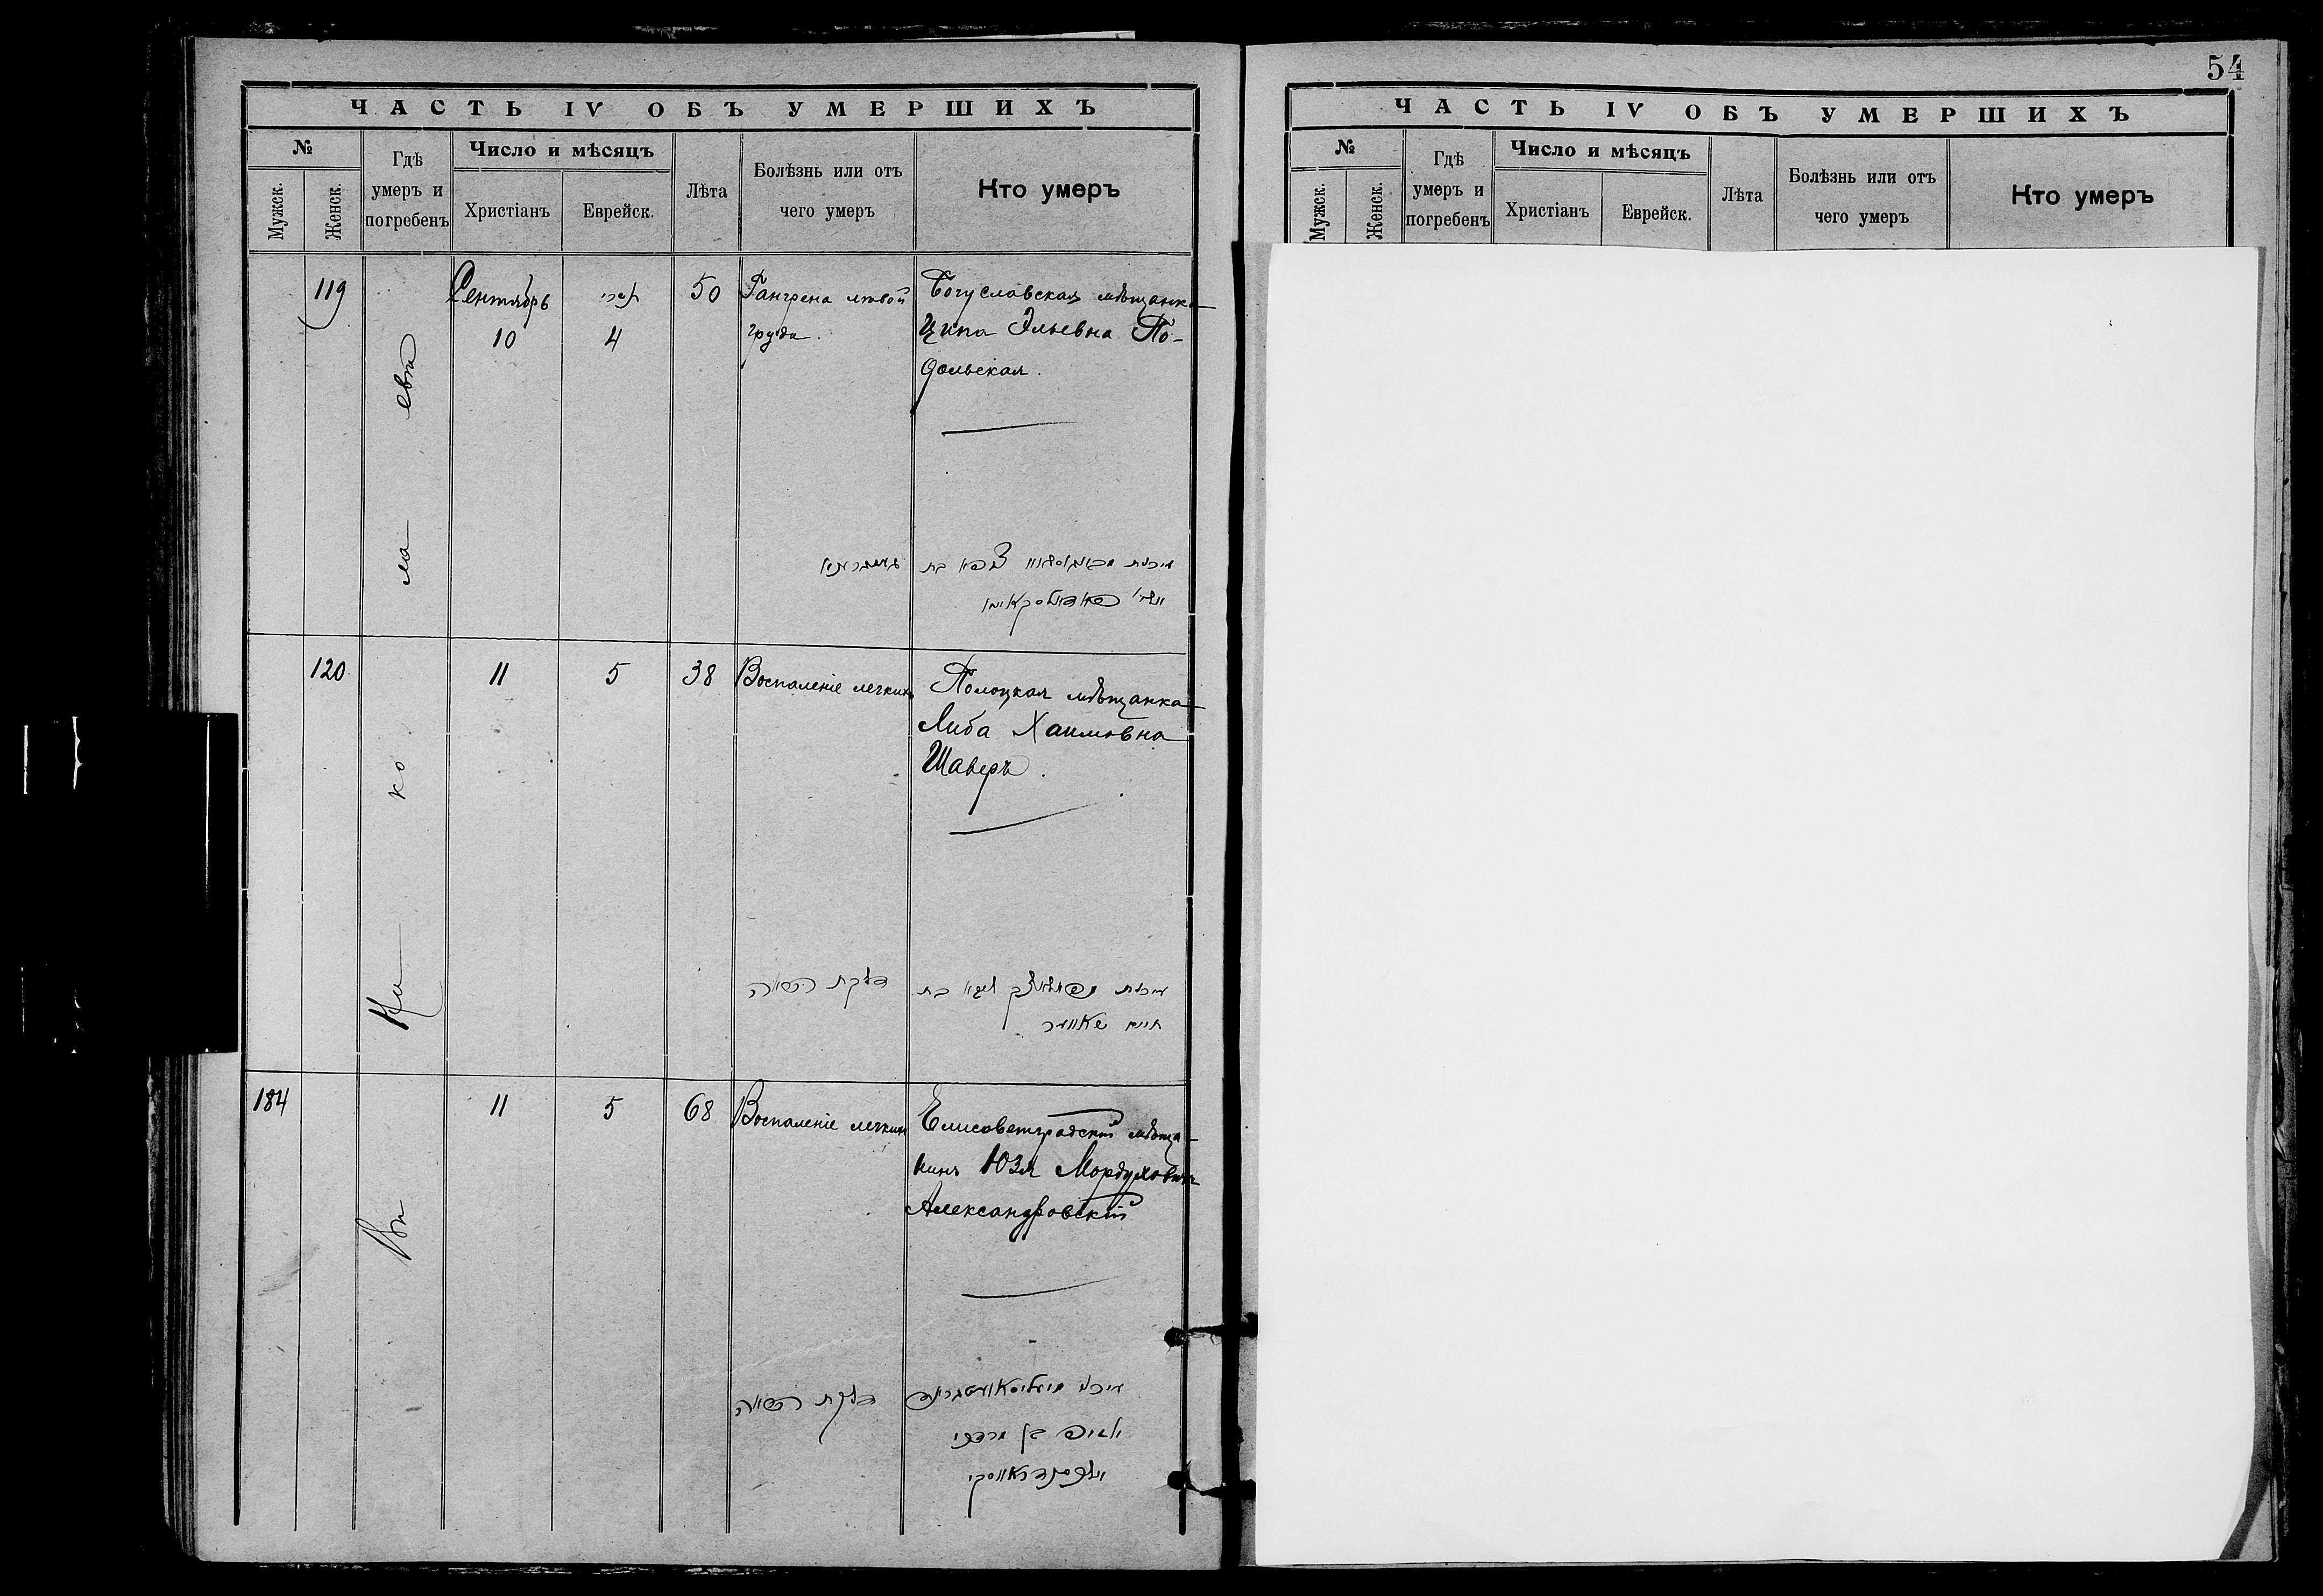 54
ЧАСТЬ IV ОБЪ УМЕРШИХЪ
№
Мужск.
Женск.
Гдѣ умеръ и погребенъ
Число и мѣсяцъ
Христіанъ
Еврейск.
Лѣта
Болѣзнь или отъ чего умеръ
Кто умеръ
119
Сентябрь
10
תשרי
4
50
Гангрена лѣвой
груди.
Богуславская мѣщанка
Ципа Эльевна По-
дольская.
120
11
5
38
Воспаленіе легкихъ
Полоцкая мѣщанка
Либа Хаимовна
Шаверъ.
דלקת הריאה
חיים שאווער
184
11
5
68
Воспаленіе легкихъ
Елисаветградскій мѣща-
нинъ Юзя Мордуховичъ
Александровскій
דלקת הריאה
בן מרדכי
ЧАСТЬ IV ОБЪ УМЕРШИХЪ
№
Мужск.
Женск.
Гдѣ умеръ и погребенъ
Число и мѣсяцъ
Христіанъ
Еврейск.
Лѣта
Болѣзнь или отъ чего умеръ
Кто умеръ